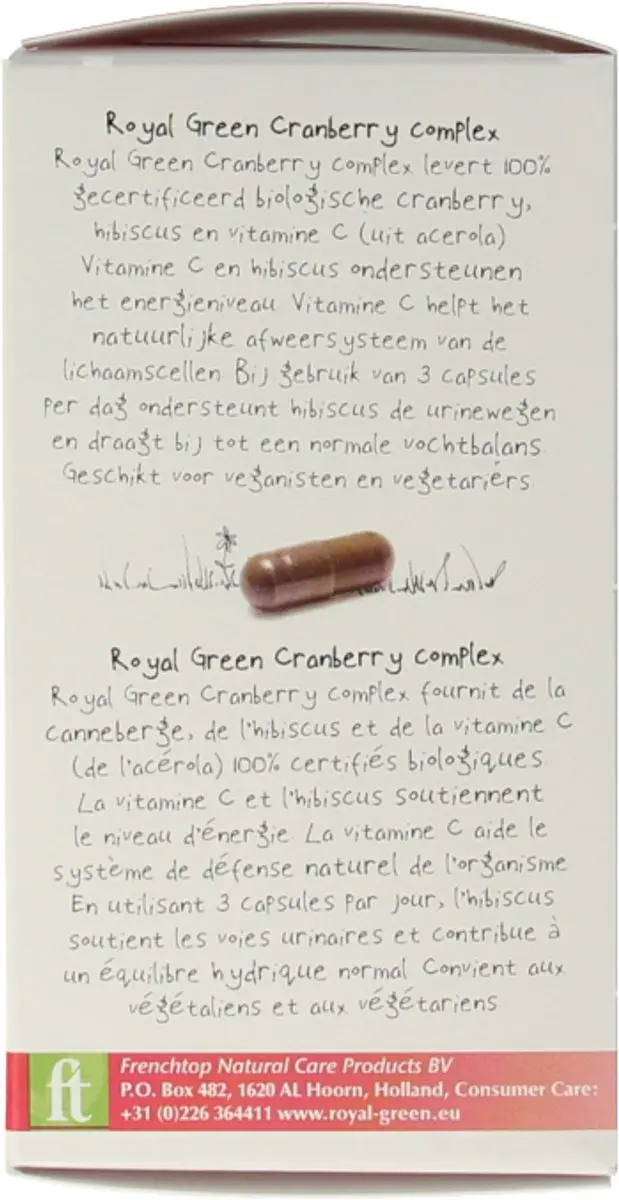 Royal Green Cranberry complex
Royal Green Cranberry complex levert 100%
gecertificeerd biologische cranberry,
hibiscus en vitamine C (uit acerola)
Vitamine C en hibiscus ondersteunen
het energieniveau Vitamine C helpt het
natuurlijke afweersysteem van de
lichaamscellen Bij gebruik van 3 capsules
per dag ondersteunt hibiscus de urinewegen
en draagt bij tot een normale vochtbalans
Geschikt voor veganisten en vegetariërs
Royal Green Cranberry complex
Royal Green Cranberry complex fournit de la
canneberge, de l'hibiscus et de la vitamine C
(de l'acérola) 100% certifiés biologiques
La vitamine C et l'hibiscus soutiennent
le niveau d'énergie La vitamine C aide le
système de défense naturel de l'organisme
En utilisant 3 capsules par jour, l'hibiscus
soutient les voies urinaires et contribue à
un équilibre hydrique normal Convient aux
végétaliens et aux végétariens
ft
Frenchtop Natural Care Products BV
P.O. Box 482, 1620 AL Hoorn, Holland, Consumer Care:
+31 (0)226 364411 www.royal-green.eu